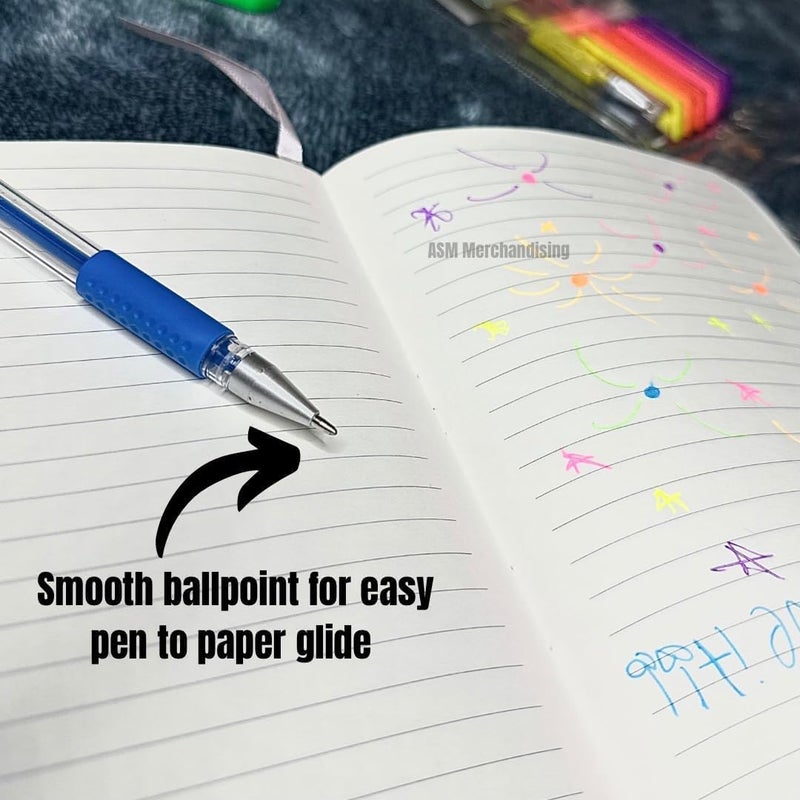 ASM Merchandising
Smooth ballpoint for easy
pen to paper glide